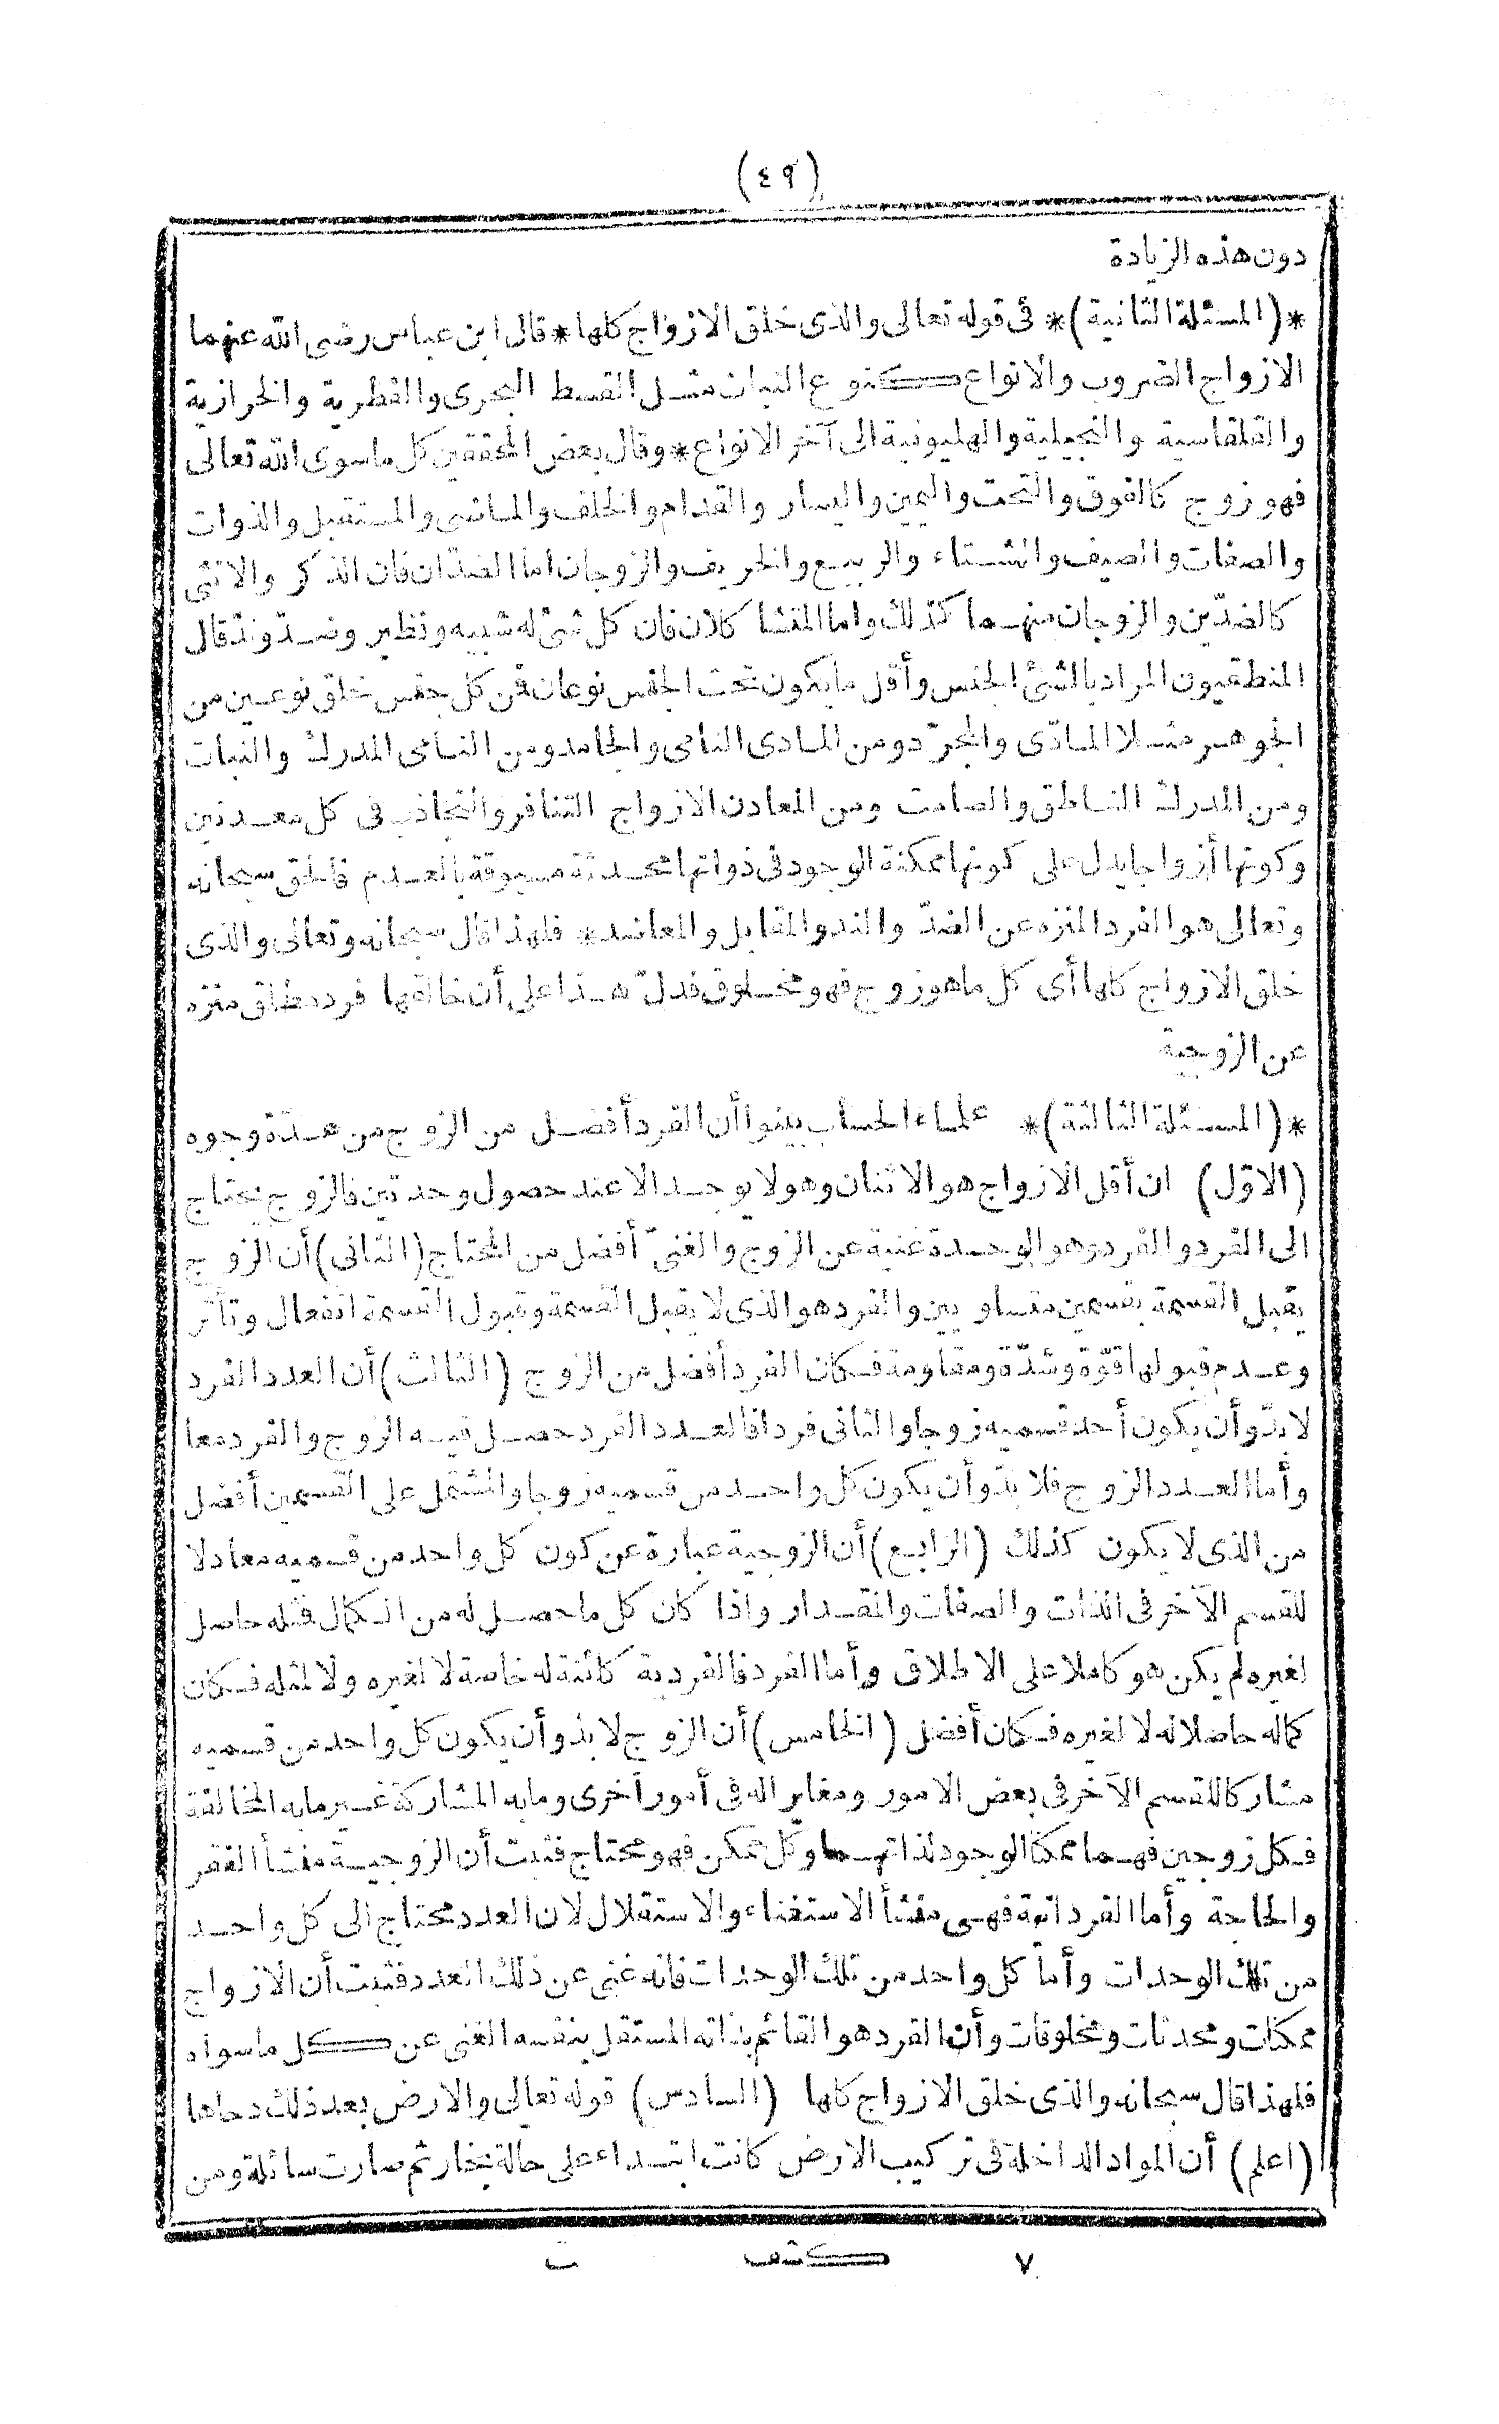 (٤٩)
دون هذه الزيادة
*(المسئلة الثانية)* فى قوله تعالى والذى خلق الازواج كلها * قال ابن عباس رضى الله عنهما
الازواج الضروب والانواع كنوع النبات مثل القسط البحرى والفطرية والحزازية
والقلقاسية والنجيلية والهليونية الى آخر الانواع * وقال بعض المحققين كل ما سوى الله تعالى
فهو زوج كالفوق والتحت واليمين واليسار والقدام والخلف والماضى والمستقبل والذوات
والصفات والصيف والشتاء والربيع والخريف والزوجان اما الضدّان فان الذكر والانثى
كالضدّين والزوجان منهما كذلك واما المتشاكلان فان كل شئ له شبيه ونظير وضدّ وندّ قال
المنطقيون المراد بالشئ الجنس وأقل ما يكون تحت الجنس نوعان فمن كل جنس خلق نوعين من
الجوهر مثلا المادّى والمجرّد ومن المادى النامى والجامد ومن النامى المدرك والنبات
ومن المدرك الناطق والصامت ومن المعادن الازواج التنافر والتجاذب فى كل معدنين
وكونها أزواجا يدل على كونها ممكنة الوجود فى ذواتها محدثة مسبوقة بالعدم فالحق سبحانه
وتعالى هو الفرد المنزه عن الضدّ والند والمقابل والمعاضد * فلهذا قال سبحانه وتعالى والذى
خلق الازواج كلها أى كل ما هو زوج فهو مخلوق فدلّ هذا على أن خالقها فرد مطلق منزه
عن الزوجية
*(المسئلة الثالثة)* علماء الحساب بينوا أن الفرد أفضل من الزوج من عدّة وجوه
(الاوّل) ان أقل الازواج هو الاثنان وهو لا يوجد الا عند حصول وحدتين فالزوج يحتاج
الى الفرد والفرد وهو الوحدة غنية عن الزوج والغنىّ أفضل من المحتاج (الثانى) أن الزوج
يقبل القسمة بقسمين متساويين والفرد هو الذى لا يقبل القسمة وقبول القسمة انفعال وتأثر
وعدم قبولها قوّة وشدّة ومقاومة فكان الفرد أفضل من الزوج (الثالث) أن العدد الفرد
لا بدّ وأن يكون أحد قسميه زوجا والثانى فردا فالعدد الفرد حصل فيه الزوج والفرد معا
وأما العدد الزوج فلا بدّ وأن يكون كل واحد من قسميه زوجا والمشتمل على القسمين أفضل
من الذى لا يكون كذلك (الرابع) أن الزوجية عبارة عن كون كل واحد من قسميه معادلا
للقسم الآخر فى الذات والصفات والمقدار واذا كان كل ما حصل له من الكمال فمثله حاصل
لغيره لم يكن هو كاملا على الاطلاق وأما الفرد فالفردية كائنة له خاصة لا لغيره ولا لمثله فكان
كماله حاصلا له لا لغيره فكان أفضل (الخامس) أن الزوج لا بد وأن يكون كل واحد من قسميه
مشاركا للقسم الآخر فى بعض الامور ومغايرا له فى أمور أخرى وما به المشاركة غير ما به المخالفة
فكل زوجين فهما ممكنا الوجود لذاتهما وكل ممكن فهو محتاج فثبت أن الزوجية منشأ الفقر
والحاجة وأما الفردانية فهى منشأ الاستغناء والاستقلال لان العدد محتاج الى كل واحد
من تلك الوحدات وأما كل واحد من تلك الوحدات فانه غنى عن ذلك العدد فثبت أن الازواج
ممكنات ومحدثات ومخلوقات وأن الفرد هو القائم بذاته المستقل بنفسه الغنى عن كل ما سواه
فلهذا قال سبحانه والذى خلق الازواج كلها (السادس) قوله تعالى والارض بعد ذلك دحاها
(اعلم) أن المواد الداخلة فى تركيب الارض كانت ابتداء على حالة بخار ثم صارت سائلة ومن
٧ كشف ت